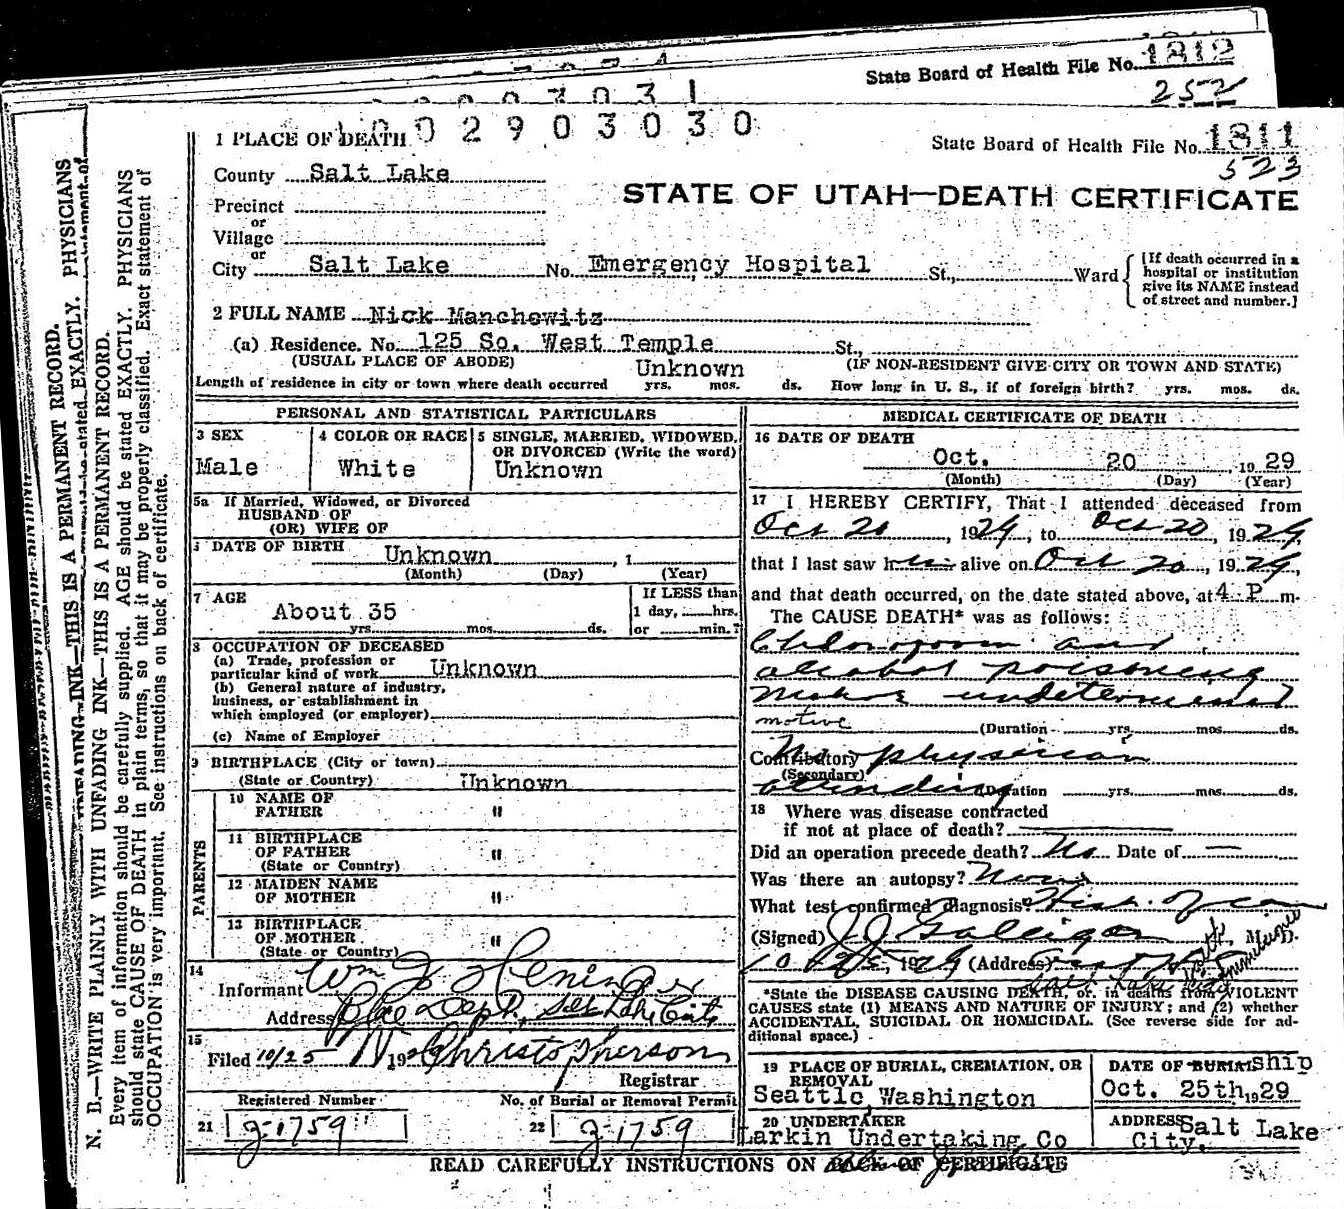 State Board of Health File No. 1812
252
0 0 2 9 0 3 0 3 0
1 PLACE OF DEATH
State Board of Health File No. 1811
523
County Salt Lake
STATE OF UTAH—DEATH CERTIFICATE
Precinct
or
Village
or
City Salt Lake No. Emergency Hospital St., Ward
[If death occurred in a
hospital or institution
give its NAME instead
of street and number.]
2 FULL NAME Nick Manchowitz
(a) Residence. No. 125 So. West Temple St.,
(USUAL PLACE OF ABODE) (IF NON-RESIDENT GIVE CITY OR TOWN AND STATE)
Unknown
Length of residence in city or town where death occurred yrs. mos. ds. How long in U. S., if of foreign birth? yrs. mos. ds.
PERSONAL AND STATISTICAL PARTICULARS
3 SEX
Male
4 COLOR OR RACE
White
5 SINGLE, MARRIED, WIDOWED,
OR DIVORCED (Write the word)
Unknown
5a If Married, Widowed, or Divorced
HUSBAND OF
(OR) WIFE OF
DATE OF BIRTH Unknown , 1
(Month) (Day) (Year)
7 AGE
About 35
yrs. mos. ds.
If LESS than
1 day, hrs.
or min.?
8 OCCUPATION OF DECEASED
(a) Trade, profession or
particular kind of work Unknown
(b) General nature of industry,
business, or establishment in
which employed (or employer)
(c) Name of Employer
9 BIRTHPLACE (City or town)
(State or Country) Unknown
PARENTS
10 NAME OF
FATHER "
11 BIRTHPLACE
OF FATHER "
(State or Country)
12 MAIDEN NAME
OF MOTHER "
13 BIRTHPLACE
OF MOTHER "
(State or Country)
14
Informant Wm J Heninger
Address Plce Dept, Salt Lake City
15
Filed 10/25 192 Christopherson
Registrar
Registered Number No. of Burial or Removal Permit
21 J-1759 22 J-1759
MEDICAL CERTIFICATE OF DEATH
16 DATE OF DEATH
Oct. 20 19 29
(Month) (Day) (Year)
17 I HEREBY CERTIFY, That I attended deceased from
Oct 20, 1929, to Oct 20, 1929,
that I last saw him alive on Oct 20, 1929,
and that death occurred, on the date stated above, at 4 P m.
The CAUSE DEATH* was as follows:
Chloroform and
alcohol poisoning
undetermined
motive
(Duration yrs. mos. ds.
Contributory No physician
(Secondary)
attending (Duration yrs. mos. ds.
18 Where was disease contracted
if not at place of death?
Did an operation precede death? No Date of —
Was there an autopsy? None
What test confirmed diagnosis? Hist. of case
(Signed) J J Galligan, M. D.
10/25, 1929 (Address)
*State the DISEASE CAUSING DEATH, or, in deaths from VIOLENT
CAUSES state (1) MEANS AND NATURE OF INJURY; and (2) whether
ACCIDENTAL, SUICIDAL OR HOMICIDAL. (See reverse side for ad-
ditional space.)
19 PLACE OF BURIAL, CREMATION, OR
REMOVAL
Seattle, Washington
DATE OF BURIAL Ship
Oct. 25th 1929
20 UNDERTAKER
Larkin Undertaking Co
ADDRESS Salt Lake
City.
READ CAREFULLY INSTRUCTIONS ON BACK OF CERTIFICATE
N. B.—WRITE PLAINLY WITH UNFADING INK—THIS IS A PERMANENT RECORD.
Every item of information should be carefully supplied. AGE should be stated EXACTLY. PHYSICIANS
should state CAUSE OF DEATH in plain terms, so that it may be properly classified. Exact statement of
OCCUPATION is very important. See instructions on back of certificate.